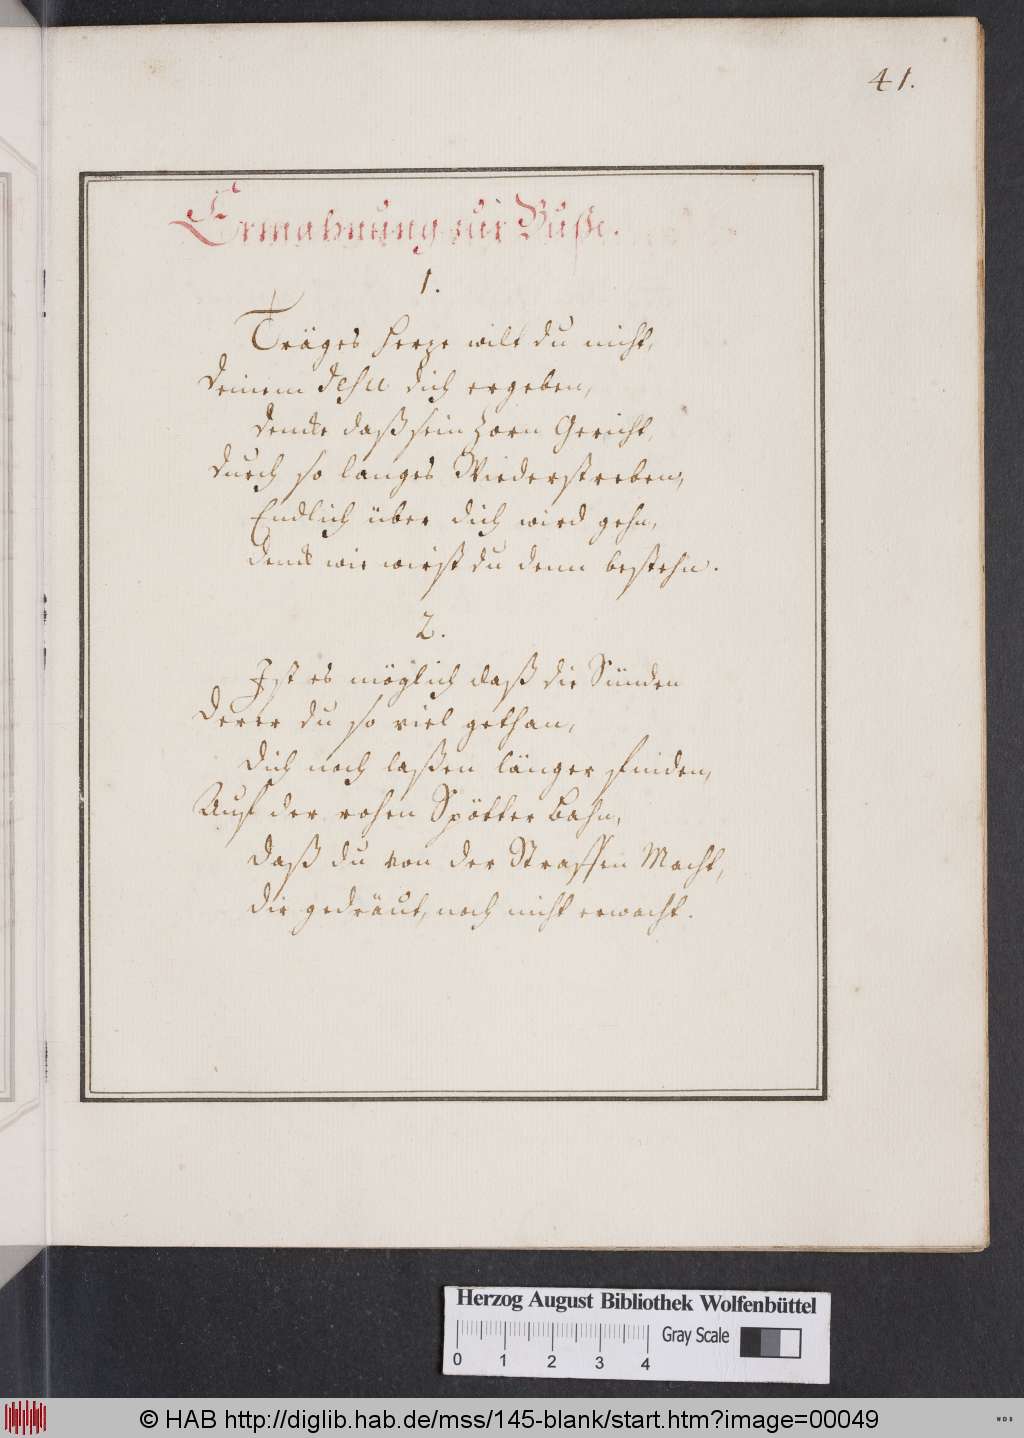 41.
Ermahnung zur Buße.
1.
Träges Hertze wilt du nicht,
Deinem Jesu dich ergeben,
Dencke daß sein Zorn Gericht,
Durch so langes Wiederstreben,
Endlich über dich wird gehn,
Denck wie wirst du denn bestehn.
2.
Ist es möglich daß die Sünden
Derer du so viel gethan,
Dich noch laßen länger finden,
Auf der rohen Spötter Bahn,
Daß du von der Straffen Macht,
Die gedräut, noch nicht erwacht.
Herzog August Bibliothek Wolfenbüttel
Gray Scale
0 1 2 3 4
© HAB http://diglib.hab.de/mss/145-blank/start.htm?image=00049